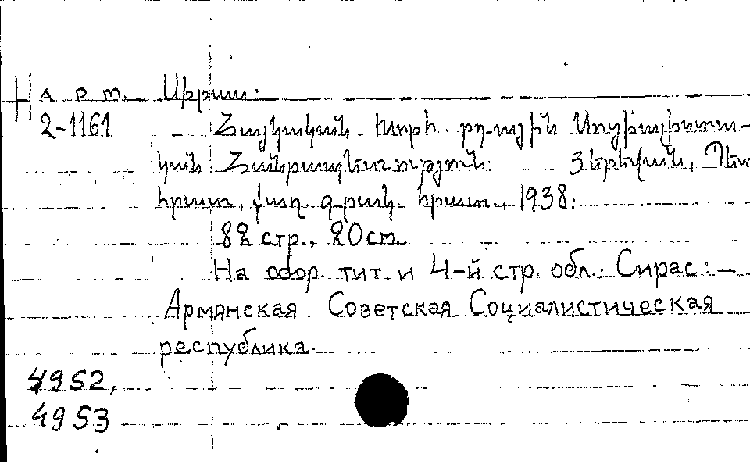 На р т. Սիրաս:
2-1161 Հայկական խորհրդային Սոցիալիստա-
կան Հանրապետություն: Յերեվան, Պետ
հրատ. քաղ. գրակ. հրատ., 1938:
82 стр., 20 см
На обор. тит. и 4-й стр. обл.: Сирас:—
Армянская Советская Социалистическая
республика.
4952,
4953